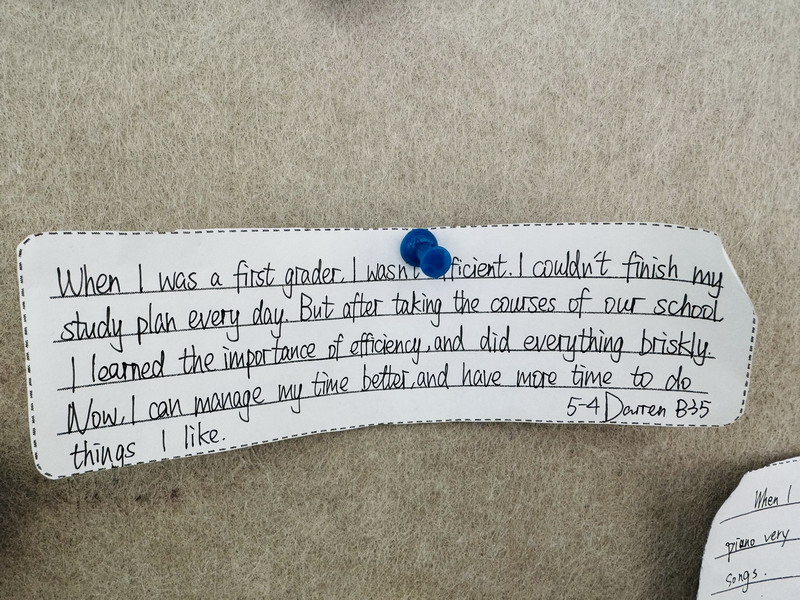 When I was a first grader, I wasn't ficient. I couldn't finish my
study plan every day. But after taking the courses of our school
I learned the importance of efficiency, and did everything briskly.
Now, I can manage my time better, and have more time to do
things I like.
5-4 Darren B35
When I
piano very
songs.